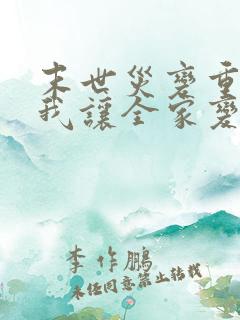 末世災變重
我讓全家變
李作鵬
未经同意禁止转载